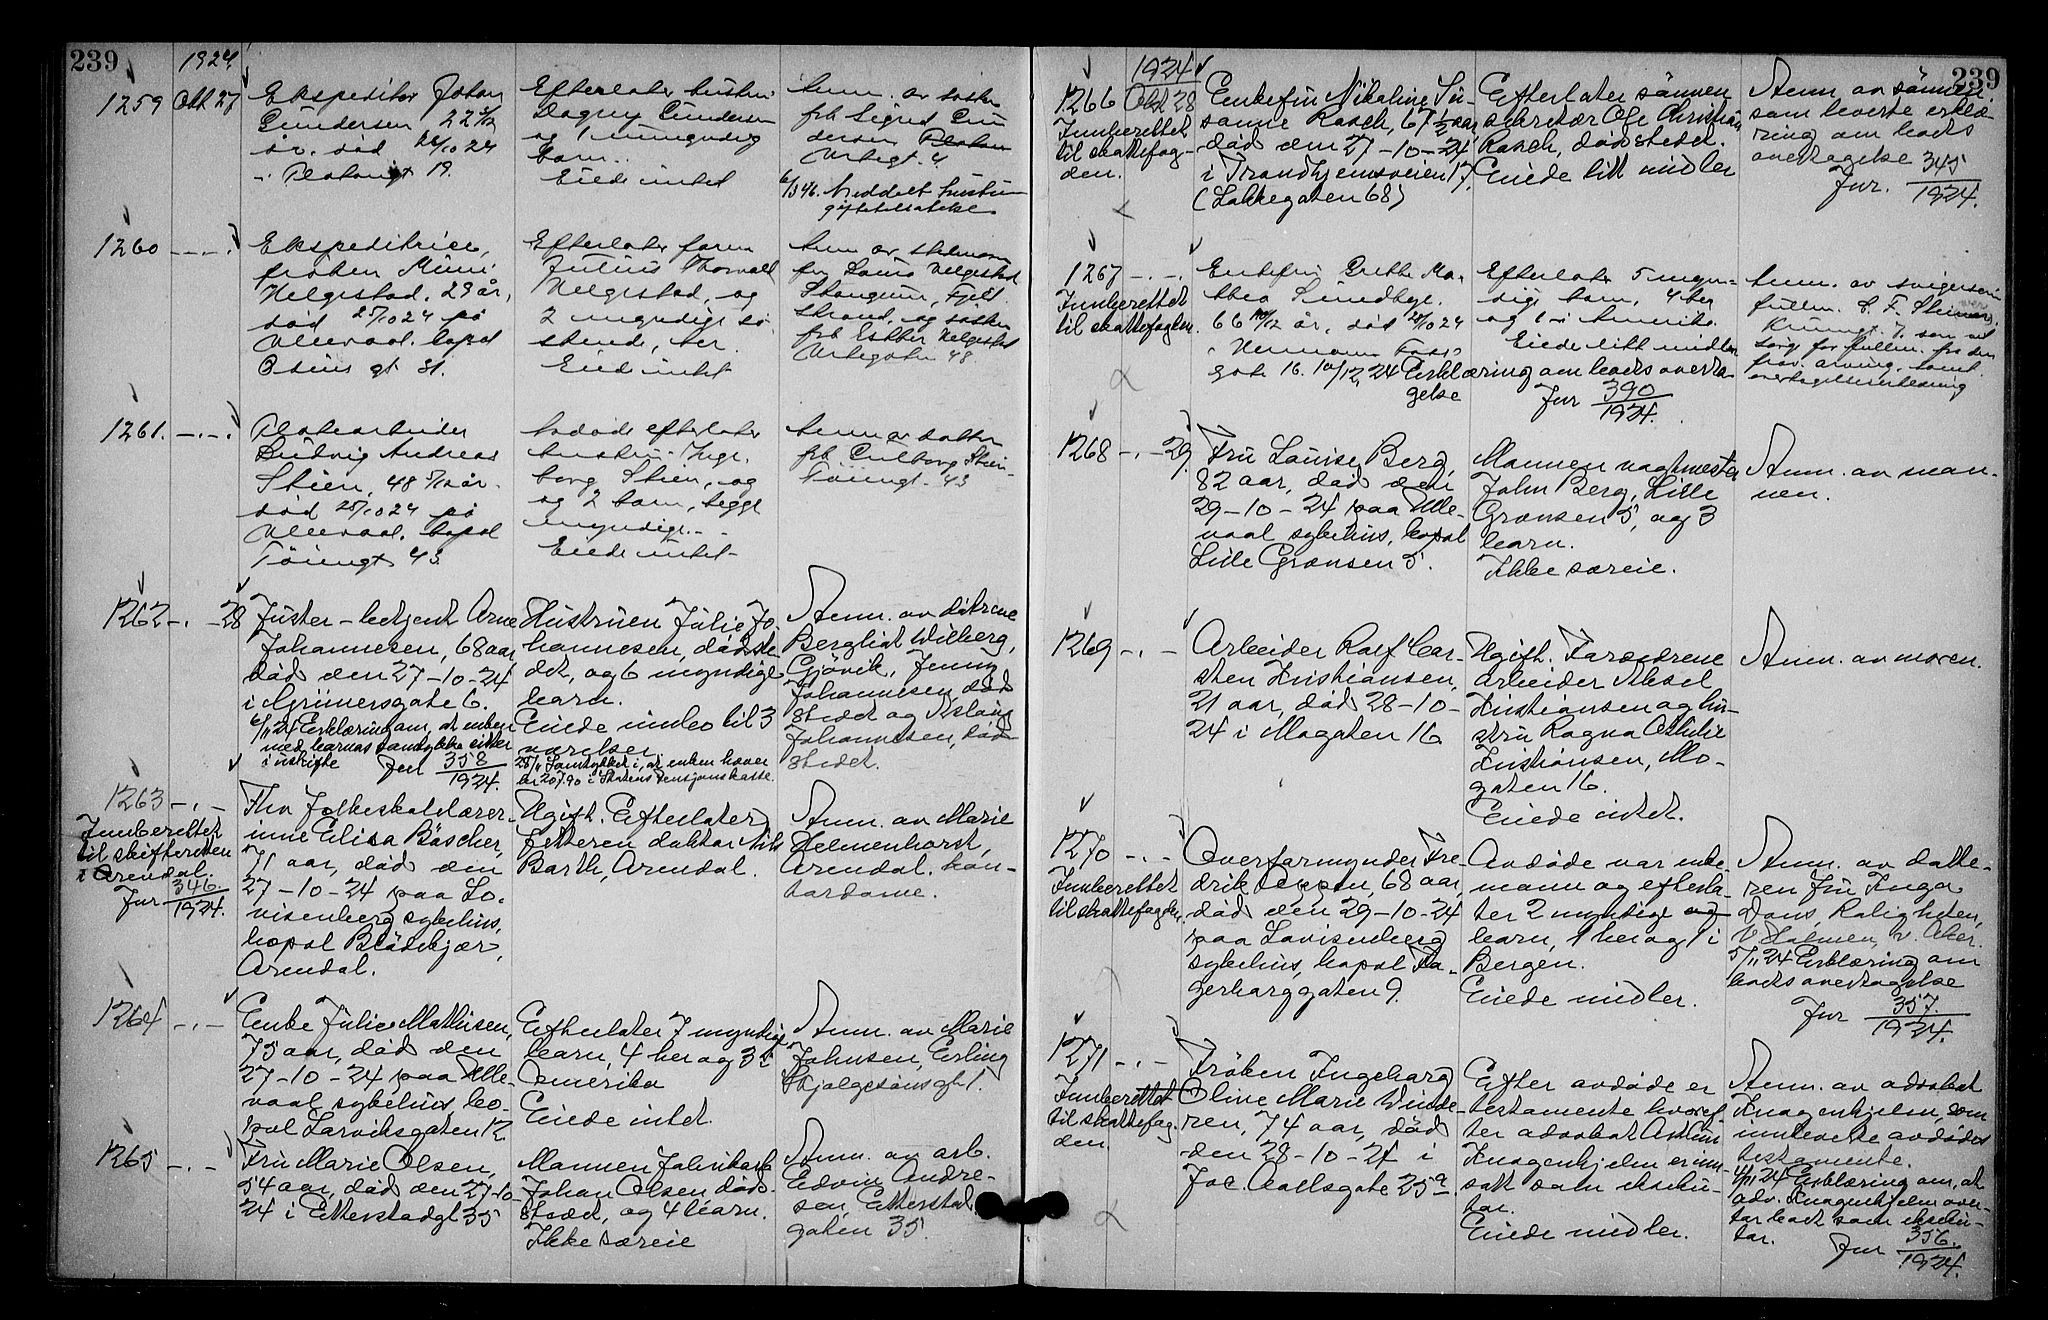 239
1924
1259 Okt 27
Ekspeditør Johan
Gundersen, 22
år. død 26/10 24
Platougt 19.
Efterlater hustru
Dagny Gundersen
og 1 umyndig
barn.
Eiede intet
Anm. av
frk Sigrid Gun
dersen
4
6/3 46. Meddelt hustru
1260 - . - .
Ekspeditrice,
frøken
Helgestad, 29 år,
død 25/10 24 på
Ullevaal. bopæl
gt 31.
Efterlater faren
Julius Thorvald
Helgestad, og
2 myndige sø
skende, her.
Eiede intet
Anm av
fru Laura Helgestad
strand, og søster
frk Esther Helgestad
48
1261. - . - .
Platearbeider
Ludvig Andreas
Stien, 48 5/12 år.
død 25/10 24 på
Ullevaal. bopæl
Töiengt 43.
Avdøde efterlater
hustru Inge-
borg Stien, og
og 2 barn, begge
myndige.
Eiede intet
Anm av datter
frk Stien
Töiengt. 43
1262 - . - 28
Juster-betjent Arne
Johannesen, 68 aar,
død den 27-10-24
i Grünersgate 6.
6/11 24 Erklæring om, at enken
med barnas samtykke sitter
i uskifte Jnr 358
1924.
Hustruen Julie Jo-
hannesen, dødste-
det, og 6 myndige
barn.
Eiede indbo til 3
værelser
25/11 Samtykket i, at enken hæver
kr 207.90 i Statens Pensjonskasse.
Anm. av døtrene
Bergliot Wiberg,
Gjövik, Jenny
Johannesen, død
stedet og Aslaug
Johannesen, død
stedet.
1263 - . -
Innberettet
til skifteretten
i Arendal.
Jnr 346.
1924.
Fhv folkeskolelærer-
inne Elisa Böscher,
71 aar, død den
27-10-24 paa Lo-
visenberg sykehus,
bopæl Blödekjær,
Arendal.
Ugift. Efterlater
fetteren doktor Nils
Barth, Arendal.
Anm. av Marie
Helmenhorst,
Arendal. kon-
tordame.
1264 - . -
Enke Julie Mathisen,
75 aar, død den
27-10-24 paa Ulle-
vaal sykehus, bo-
pæl Larviksgaten 12.
Efterlater 7 myndige
barn, 4 her og 3 i
Amerika
Eiede intet.
Anm. av Marie
Johnsen, Erling
Skjalgsönsgt 1.
1265 - . -
Fru Marie Olsen,
54 aar, død den 27-10-
24 i Etterstadgt 35
Mannen fabrikarb.
Johan Olsen, død-
stedet, og 4 barn.
Ikke særeie
Anm. av arb.
Edvin Andre-
sen, Etterstad
gaten 35.
239
1924
1266 Okt 28
Innberettet
til skattefog-
den.
Enkefru Nikoline Su-
sanne Rasch, 67 1/2 aar,
død den 27-10-24
i Trondhjemsveien 17.
(Lakkegaten 68)
Efterlater sønnen
sekretær Ole Christian
Rasch, dødstedet.
Eiede litt midler
Anm. av sønnen
som leverte erklæ-
ring om boets
overtagelse
Jnr. 345
1924.
1267 - . - .
Innberettet
til skattefogden.
Enkefru Grethe Ma-
thea Sundbye.
66 10/12 år, død 28/10 24
i Hermann Foss'
gate 16. 10/12 24 Erklæring om boets overta-
gelse Jnr 390
1924.
Efterlater 5 myn-
dige barn, 4 her
og 1 i Amerika.
Eiede litt midler
Anm. av svigersønn
fullm. S. F.
7. som vil
sørge for fullm. fra den
frav. arving, samt
overtagelseserklæring
1268 - . - 29.
Fru Louise Berg,
82 aar, død den
29-10-24 paa Ulle-
vaal sykehus, bopæl
Lille Grænsen 5.
Mannen vagtmester
John Berg, Lille
Grænsen 5, og 3
barn.
Ikke særeie.
Anm. av man-
nen.
1269 - . -
Arbeider Rolf Car-
sten Kristiansen,
21 aar, død 28-10-
24 i Mogaten 16.
Ugift. Foreldrene
arbeider Aksel
Kristiansen og hu-
stru Ragna Othilie
Kristiansen, Mo-
gaten 16.
Eiede intet.
Anm. av moren.
1270 - . -
Innberettet
til skattefogden.
Overformynder Fre-
drik Oppen, 68 aar,
død den 29-10-24
paa Lovisenberg
sykehus, bopæl Fa-
gerborggaten 9.
Avdøde var enke-
mann og efterla-
ter 2 myndige
barn, 1 her og 1 i
Bergen.
Eiede midler.
Anm. av datte-
ren fru Inga
Dons, Roligheten,
V Holmen, v. Aker.
5/11 24 Erklæring om
boets overtagelse
Jnr 357.
1924.
1271 - . -
Innberettet
til skattefog-
den.
Frøken Ingeborg
Oline Marie Winde-
ren, 74 aar, død
den 28-10-24 i
Joc. Aallsgate 25a.
Efter avdøde er
testamente hvoref-
ter advokat
Knagenhjelm er inn-
satt som ekseku-
tor.
Eiede midler.
Anm. av advokat
Knagenhjelm, som
innleverte avdødes
testamente.
4/11 24 Erklæring om, at
adv. Knagenhjelm over-
tar boet som ekseku-
tor. Jnr 356.
1924.